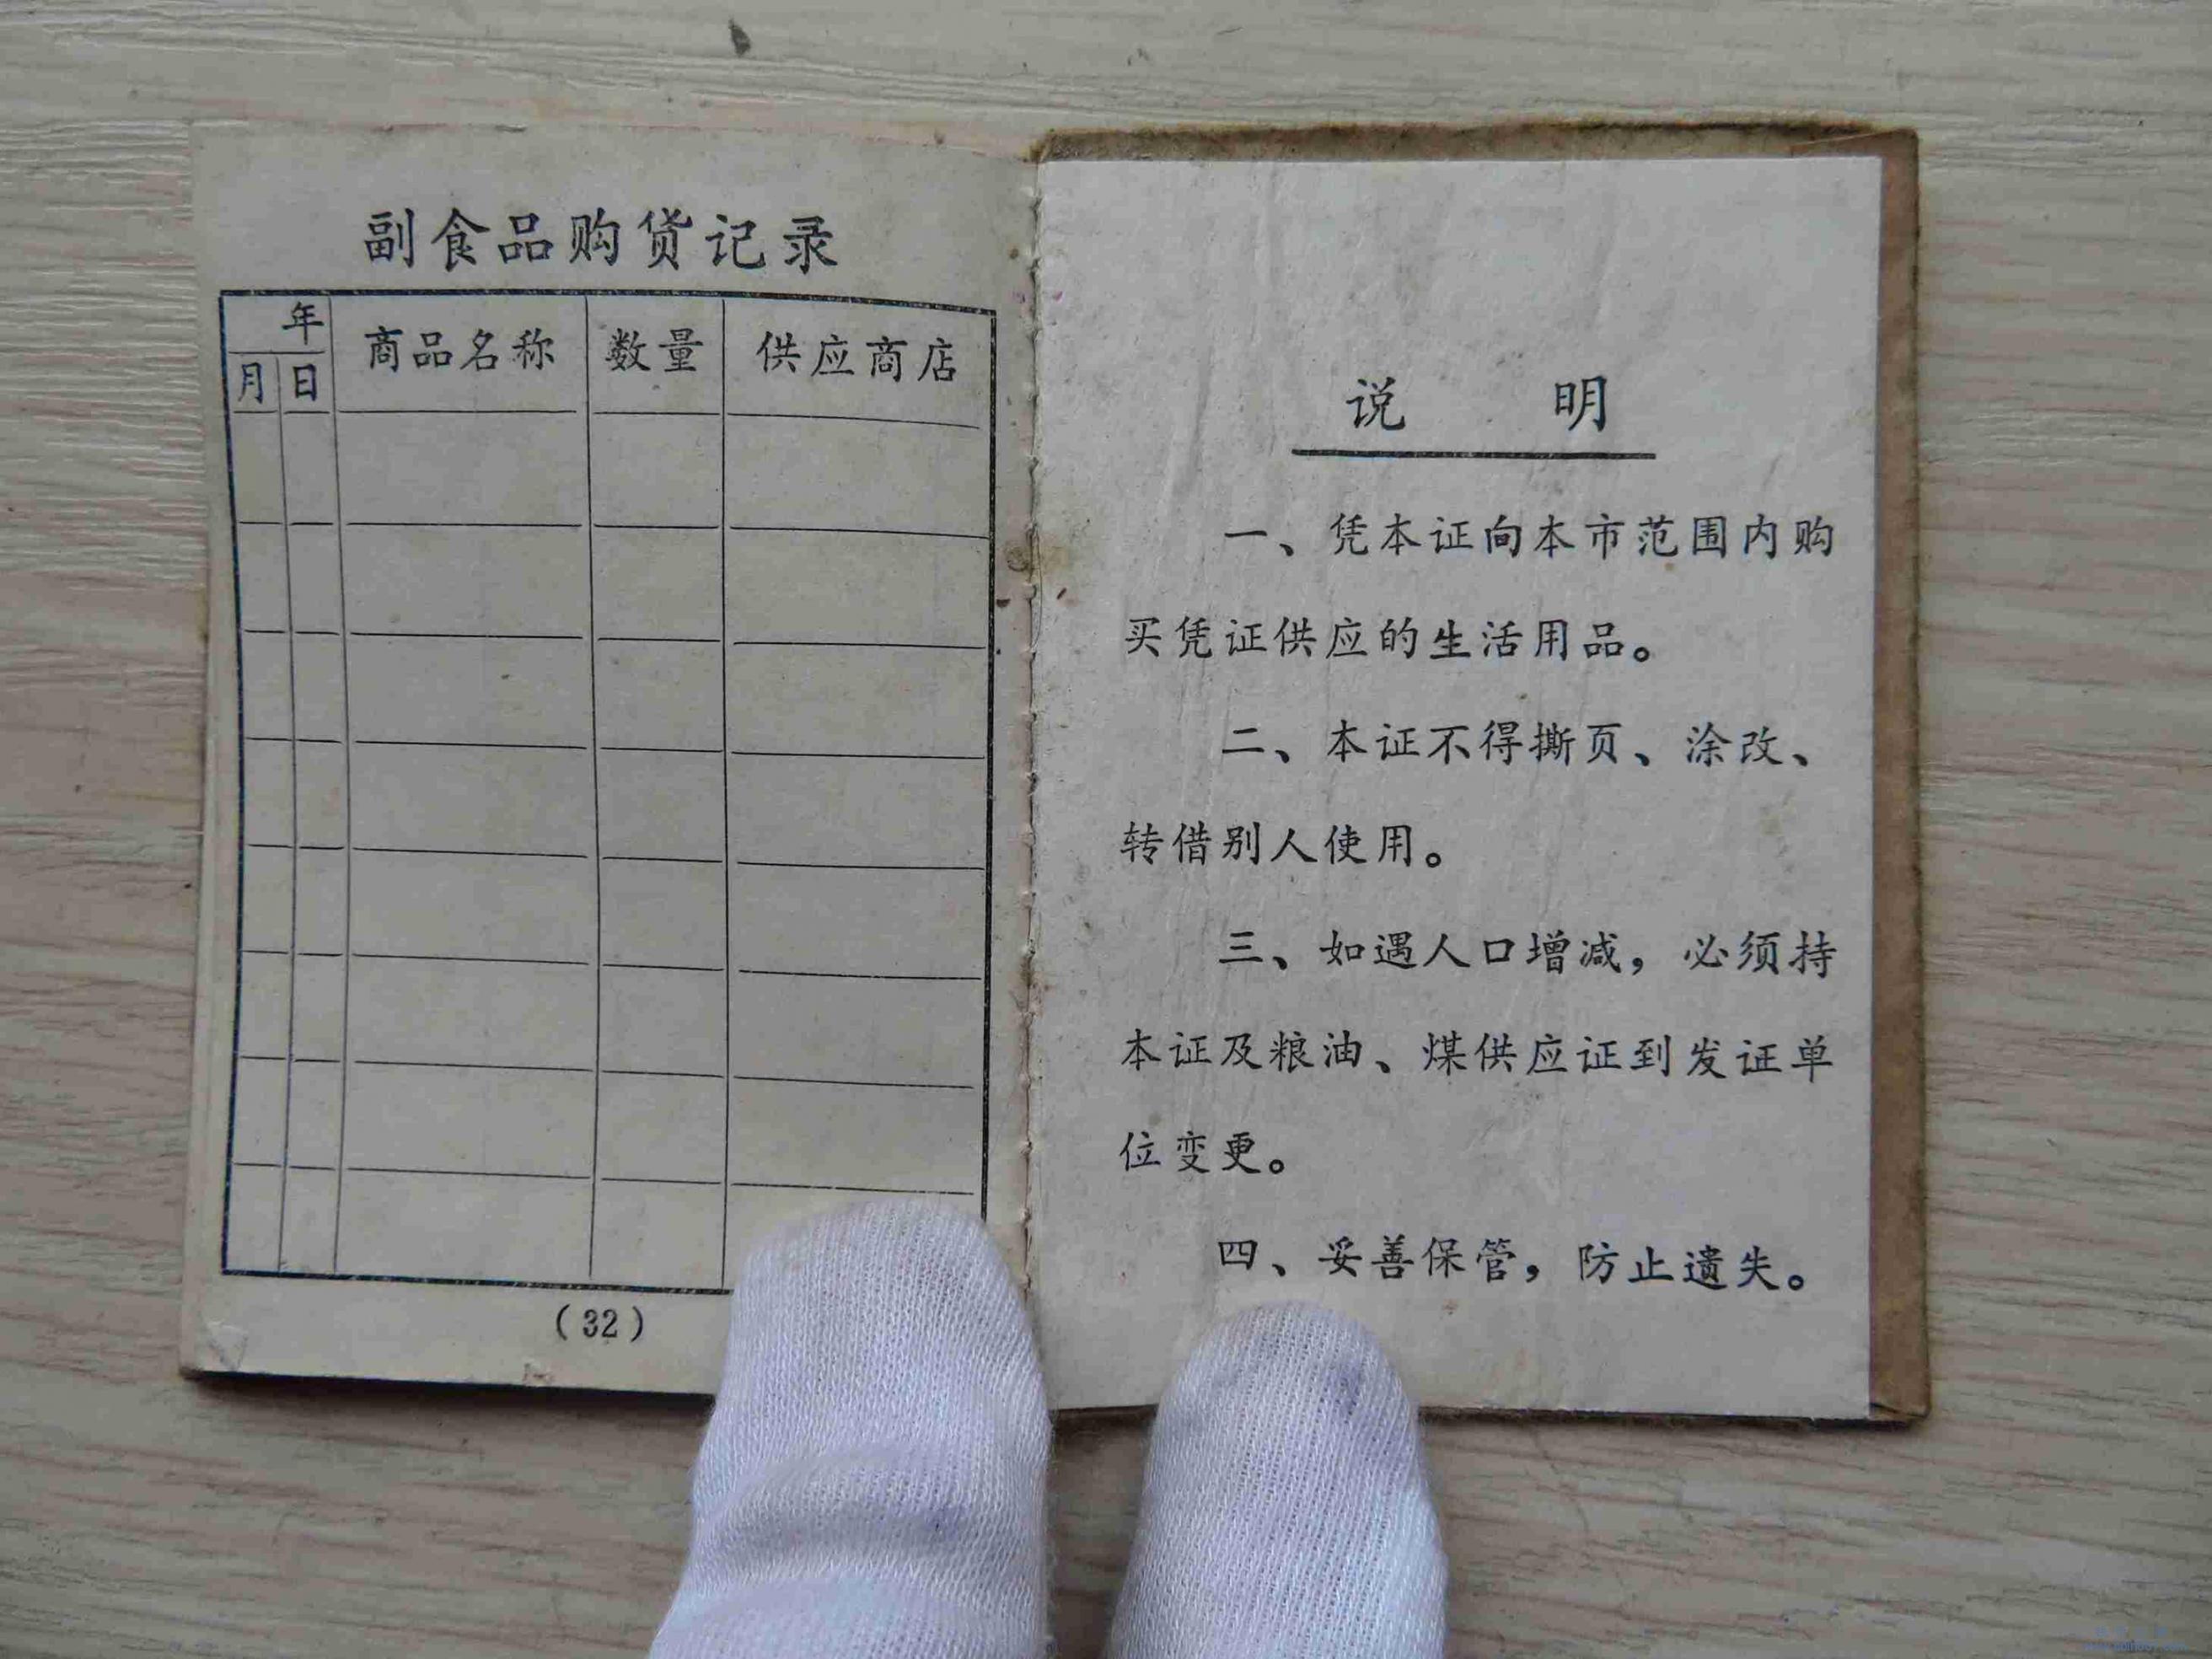 副食品购货记录
年
月 日 商品名称 数量 供应商店
(32)
说 明
一、凭本证向本市范围内购
买凭证供应的生活用品。
二、本证不得撕页、涂改、
转借别人使用。
三、如遇人口增减，必须持
本证及粮油、煤供应证到发证单
位变更。
四、妥善保管，防止遗失。